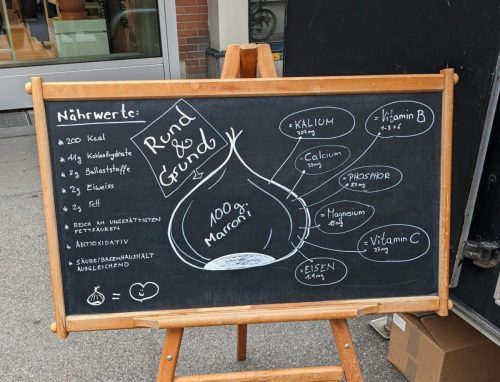 Nährwerte:
* 200 Kcal
* 41g Kohlenhydrate
* 8g Ballaststoffe
* 2g Eiweiss
* 2g Fett
* REICH AN UNGESÄTTIGTEN
FETTSÄUREN
* ANTIOXIDATIV
* SÄURE/BASENHAUSHALT
AUSGLEICHEND
=
Rund
&
G'sund
100g
Marroni
= KALIUM
707mg
= Vitamin B
1-3+6
= Calcium
33mg
= PHOSPHOR
87mg
= Magnesium
45mg
= Vitamin C
27mg
= EISEN
1.4mg